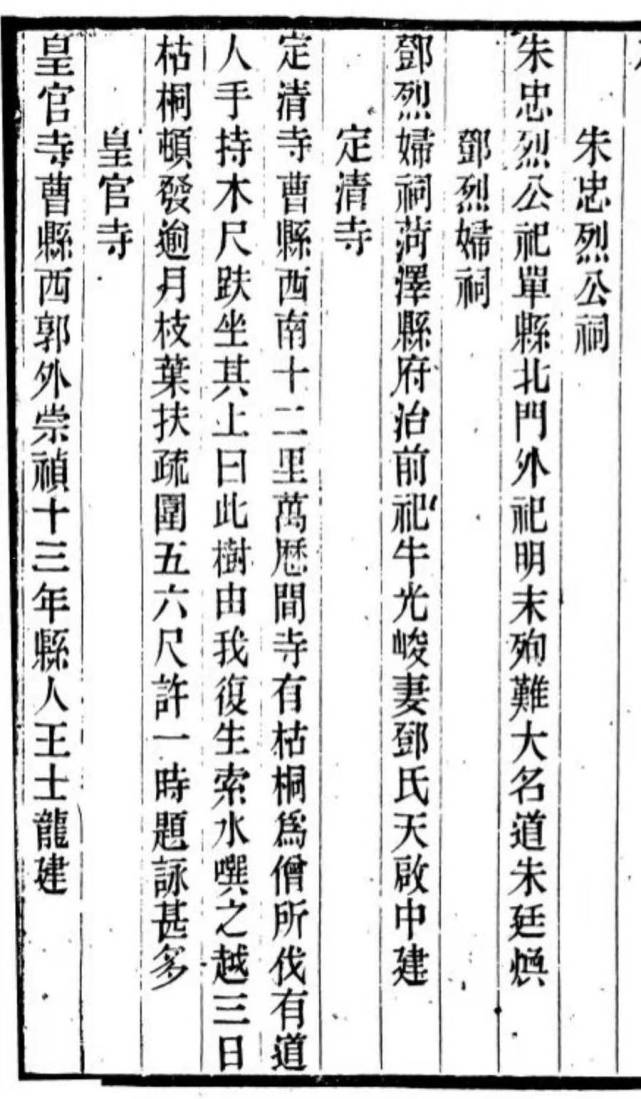 朱忠烈公祠
朱忠烈公祀單縣北門外祀明末殉難大名道朱廷煥
鄧烈婦祠
鄧烈婦祠菏澤縣府治前祀牛光峻妻鄧氏天啟中建
定清寺
定清寺曹縣西南十二里萬歷間寺有枯桐爲僧所伐有道
人手持木尺趺坐其上曰此樹由我復生索水噀之越三日
枯桐頓發逾月枝葉扶疏圍五六尺許一時題詠甚多
皇官寺
皇官寺曹縣西郭外崇禎十三年縣人王士龍建